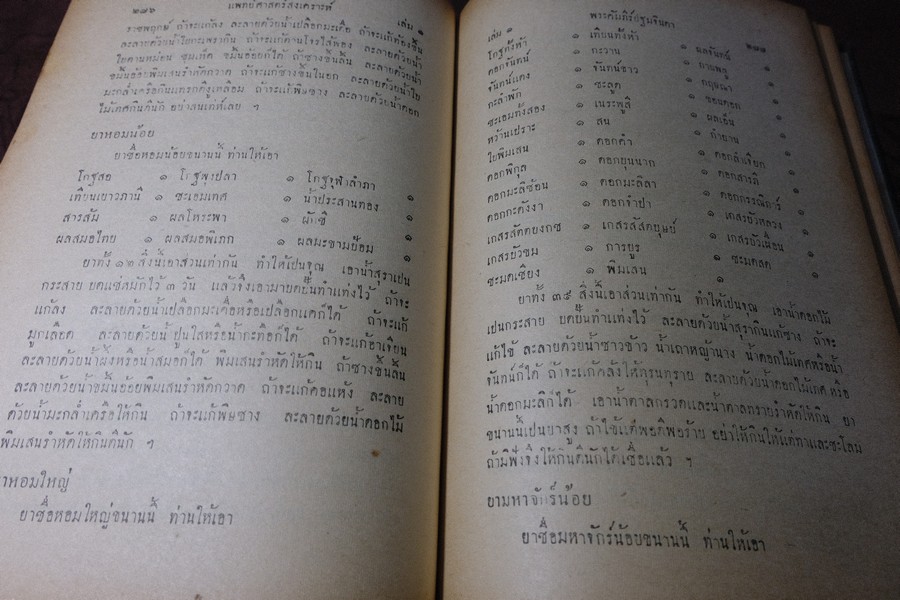 ๒๘๖ แพทย์ศาสตร์สงเคราะห์ เล่ม ๑
ราชพฤกษ์ ถ้าจะแก้ลง ละลายด้วยน้ำเปลือกมะเดื่อ ถ้าจะแก้ท้องขึ้น
ละลายด้วยน้ำใบกะเพรากิน
ใบตานหม่อน ขมิ้นอ้อยก็ได้ ถ้าซางขึ้นลิ้น ละลายด้วยน้ำ
ขมิ้นอ้อยพิมเสนรำหัดกวาด ถ้าจะแก้ซางขึ้นในอก ละลายด้วยน้ำใบ
มะกล่ำเครือกินแทรกดีงูเหลือม ถ้าจะแก้พิษซาง ละลายด้วยน้ำดอก
ไม้เทศกินดีนัก อย่าสนเท่ห์เลย ฯ
ยาหอมน้อย
ยาชื่อหอมน้อยขนานนี้ ท่านให้เอา
โกฐสอ ๑ โกฐพุงปลา ๑ โกฐจุฬาลำภา ๑
เทียนเยาวภานี ๑ ชะเอมเทศ ๑ น้ำประสานทอง ๑
สารส้ม ๑ ผลโหระพา ๑ ผักชี ๑
ผลสมอไทย ๑ ผลสมอพิเภก ๑ ผลมะขามป้อม ๑
ยาทั้ง ๑๒ สิ่งนี้เอาส่วนเท่ากัน ทำให้เป็นจุณ เอาน้ำสุราเป็น
กระสาย บดแช่สมกไว้ ๓ วัน แล้วจึงเอามาบดปั้นทำแท่งไว้ ถ้าจะ
แก้ลง ละลายด้วยน้ำเปลือกมะเดื่อหรือเปลือกแคก็ได้ ถ้าจะแก้
มูกเลือด ละลายด้วยน้ำปูนใสหรือน้ำกะทือก็ได้ ถ้าจะแก้อาเจียน
ละลายด้วยน้ำผึ้งหรือน้ำสมอก็ได้ พิมเสนรำหัดให้กิน ถ้าซางขึ้นลิ้น
ละลายด้วยน้ำขมิ้นอ้อยพิมเสนรำหัดกวาด ถ้าจะแก้คอแห้ง ละลาย
ด้วยน้ำมะกล่ำเครือให้กิน ถ้าจะแก้พิษซาง ละลายด้วยน้ำดอกไม้
พิมเสนรำหัดให้กินดีนัก ฯ
ยาหอมใหญ่
ยาชื่อหอมใหญ่ขนานนี้ ท่านให้เอา
เล่ม ๑ พระคัมภีร์ปฐมจินดา ๒๘๗
โกฐทั้งห้า ๑ เทียนทั้งห้า ๑ ผลจันทน์ ๑
ดอกจันทน์ ๑ กะวาน ๑ กานพลู ๑
จันทน์แดง ๑ จันทน์ขาว ๑ กฤษณา ๑
กะลำพัก ๑ ชะลูด ๑ ขอนดอก ๑
ชะเอมทั้งสอง ๑ เนระพูสี ๑ ผลเอ็น ๑
ว่านเปราะ ๑ สน ๑ กำยาน ๑
ใบพิมเสน ๑ ดอกคำ ๑ ดอกลำเจียก ๑
ดอกพิกุล ๑ ดอกบุนนาก ๑ ดอกสารภี ๑
ดอกมะลิซ้อน ๑ ดอกมะลิลา ๑ ดอกกรรณิการ์ ๑
ดอกกะดังงา ๑ ดอกจำปา ๑ เกสรบัวหลวง ๑
เกสรสัตตบงกช ๑ เกสรสัตตบุษย์ ๑ เกสรบัวเผื่อน ๑
เกสรบัวขม ๑ การบูร ๑ ชะมดสด ๑
ชะมดเชียง ๑ พิมเสน ๑
ยาทั้ง ๓๙ สิ่งนี้เอาส่วนเท่ากัน ทำให้เป็นจุณ เอาน้ำดอกไม้
เป็นกระสาย บดปั้นทำแท่งไว้ ละลายด้วยน้ำสุรากินแก้ซาง ถ้าจะ
แก้ไข้ ละลายด้วยน้ำซาวข้าว น้ำเถาหญ้านาง น้ำดอกไม้เทศหรือน้ำ
จันทน์ก็ได้ ถ้าจะแก้คลั่งให้ทุรนทุราย ละลายด้วยน้ำดอกไม้เทศ หรือ
น้ำดอกมะลิก็ได้ เอาน้ำตาลกรวดและน้ำตาลทรายรำหัดให้กิน ยา
ขนานนี้เป็นยาสูง ถ้าไข้แต่พอดีพอร้าย อย่าให้กินให้แต่ทาและชะโลม
ถ้ามิฟังจึงให้กินดีนักได้เชื่อแล้ว ฯ
ยามหาจักร์น้อย
ยาชื่อมหาจักร์น้อยขนานนี้ ท่านให้เอา